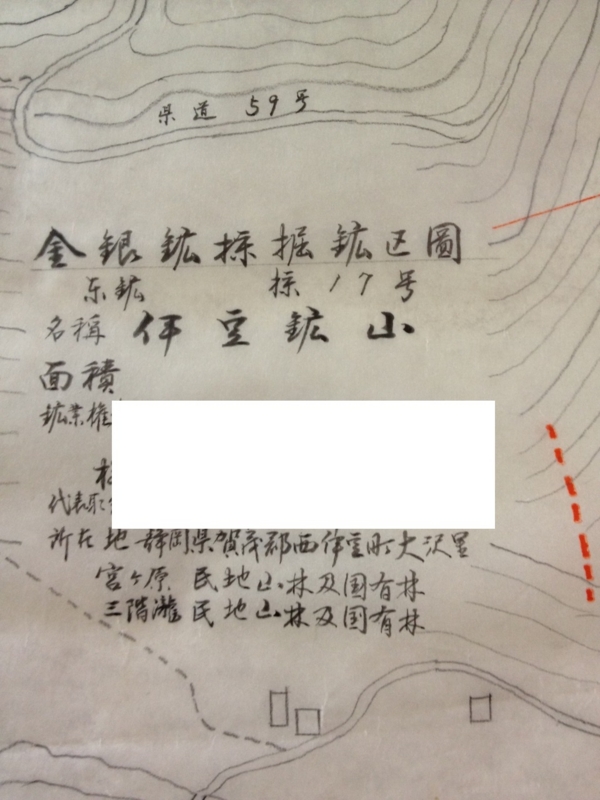 県道 59号
金銀鉱採掘鉱区圖
东鉱 採17号
名稱 伊豆鉱山
面積
鉱業権
代表取
所在地 静岡県賀茂郡西伊豆町大沢里
宮ヶ原 民地山林及国有林
三階滝 民地山林及国有林